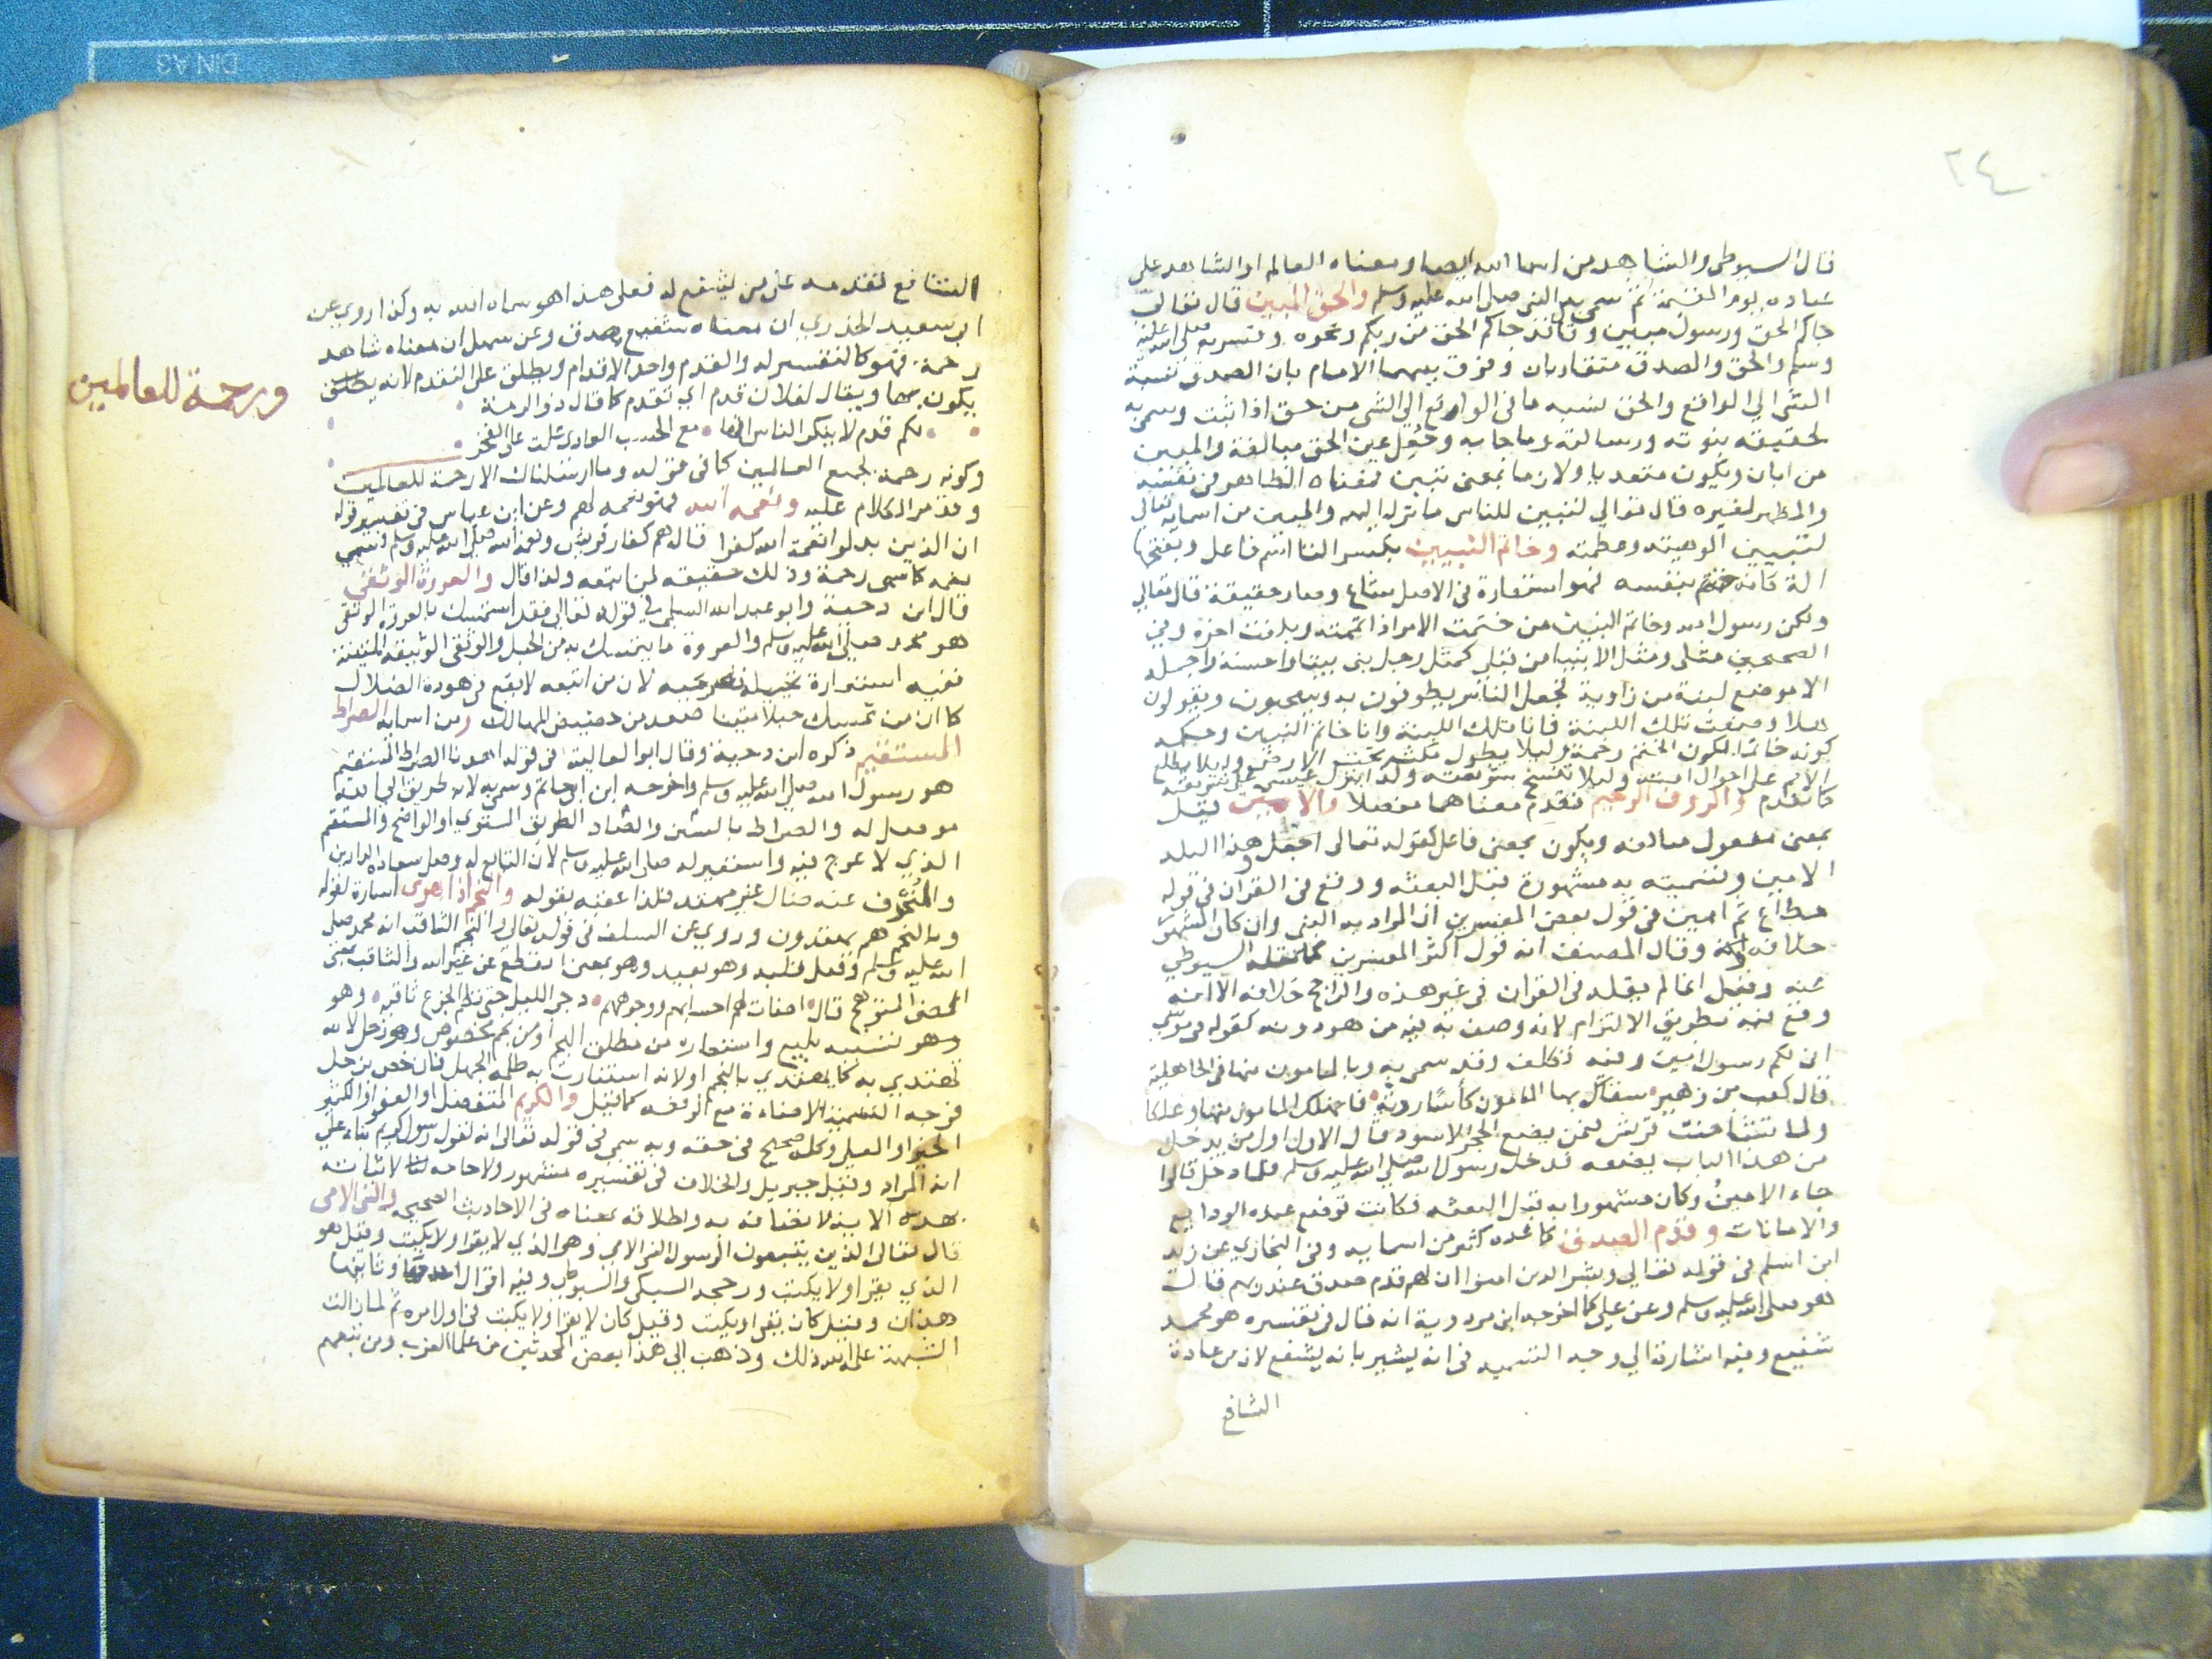 ٢٤٠
قال السيوطى والشاهد من اسما الله ايضا ومعناه العالم او الشاهد على
عباده يوم القيمة ثم سمى به النبى صلى الله عليه وسلم والحق المبين قال تعالى
جاكم الحق ورسول مبين وقال قد جاكم الحق من ربكم ونحوه وفسر به صلى الله عليه
وسلم والحق والصدق متقاربان وفرق بينهما الامام بان الصدق نسبة
الشى الي الواقع والحق نسبه ما فى الواقع الي الشى من حق اذا ثبت وسمى به
لحقيقه نبوته ورسالته وما جا به وجعل عين الحق مبالغة والمبين
من ابان ويكون متعديا ولازما بمعنى تبين فمعناه الظاهر فى نفسه
والمظهر لغيره قال تعالي لتبين للناس ما نزل اليهم والمبين من اسمايه تعالي
لتبيين الوهيته وعظمته وخاتم النبيين بكسر التا اسم فاعل وبفتحها
الة كانه ختم بنفسه فهو استعارة فى الاصل شاع وصار حقيقة قال تعالي
ولكن رسول الله وخاتم النبيين من ختمت الامر اذا اتممته وبلغت اخره وفي
الصحيحين مثلى ومثل الانبيا من قبلى كمثل رجل بنى بيتا واحسنه واجمله
الا موضع لبنة من زاوية فجعل الناس يطوفون به ويتعجبون ويقولون
هلا وضعت تلك اللبنة فانا تلك اللبنة وانا خاتم النبيين وحكمه
كونه خاتما ليكون الختم رحمة وليلا يطول مكث تحت الارض وليلا يطلع
الامم على احوال امته وليلا تنسخ شريعته ولذا ينزل عيسى على شريعته
كما تقدم والروف الرحيم تقدم معناهما مفصلا والامين قيل
بمعنى مفعول صادفه ويكون بمعنى فاعل كقوله تعالى اجعل هذا البلد
الامين وتسميته به مشهورة قبل البعثه ووقع فى القران فى قوله
مطاع ثم امين فى قول بعض المفسرين ان المراد به النبى وان كان المشهور
خلافه وقال المصنف انه قول اكثر المفسرين كما نقله السيوطي
عنه وقيل انما لم يقله فى القران فى غير هذه والراجح خلافه الا انه
وقع فيه بطريق الالتزام لانه وصف به فيه من هو دونه كقوله فى موسى
انى لكم رسول امين وفيه تكلف وقد سمى به وبالمامون بها فى الجاهلية
قال كعب بن زهير سقاك بها المامون كأسًا روية فانهلك المامون منها وعلكا
ولما تشاحنت قريش فيمن يضع الحجر الاسود قال الاول اول من يدخل
من هذا الباب يضعه فدخل رسول الله صلى الله عليه وسلم فلما دخل قالوا
جاء الامين وكان مشهورا به قبل البعثه فكانت توضع عنده الودايع
والامانات وقدم الصدق كما عده كثير من اسمايه وفى البخاري عن زيد
ابن اسلم فى قوله تعالي وبشر الذين امنوا ان لهم قدم صدق عند ربهم قال
هو صلى الله عليه وسلم وعن علي كما اخرجه ابن مردوية انه قال فى تفسيره هو محمد
شفيع وفيه اشارة الي وجه التسميه فى انه يشير بانه يشفع لان من عادة
الشافع
الشافع تقدمه على من يشفع له فعلى هذا هو سماه الله به وكذا روي عن
ابى سعيد الخدري ان معناه شفيع صدق وعن سهل ان معناه شاهد
رحمة فهو كالتفسير له والقدم واحد الاقدام ويطلق على التقدم لانه
يكون بها ويقال لفلان قدم اي تقدم كما قال ذو الرمة
لكم قدم لا ينكر الناس انها مع الحسب العادى علت على الفخر
ورحمة للعالمين
وكونه رحمة لجميع العالمين كما فى قوله وما ارسلناك الا رحمة للعالمين
وقد مر الكلام عليه ونعمة الله فهو نعمه لهم وعن ابن عباس فى تفسير قوله
ان الذين بدلوا نعمة الله كفرا قال هم كفار قريش ونعمة الله صلى الله عليه وسلم وسمى
نعمه كما سمى رحمة وذلك حقيقه لمن اتبعه ولذا قال والعروة الوثقى
قال ابن دحية وابو عبد الله السلمى فى قوله تعالي فقد استمسك بالعروة الوثقى
هو محمد صلى الله عليه وسلم والعروة ما يتمسك به من الحبل والوثقى الوثيقه المتينة
ففيه استعارة لان من اتبعه لا يقع فى هوة الضلال
كما ان من تمسك حبلا متينا صعد من حضيض المهالك ومن اسمايه الصراط
المستقيم ذكره ابن دحية وقال ابو العالية فى قوله اهدنا الصراط المستقيم
هو رسول الله صلى الله عليه وسلم واخرجه ابن ابى حاتم وسمى به لانه طريق الي الله
موصل له والصراط بالسين والصاد الطريق المستوي او الواضح والمستقيم
الذي لا عوج فيه واستعير له صلى الله عليه وسلم لان التابع له وصل سعادة الدارين
والمنحرف عنه ضال غير مهتد فلذا عقبه بقوله والنجم اذا هوى اشارة لقوله
وبالنجم هم يهتدون وروي عن السلف فى قوله تعالى والنجم الثاقب انه محمد صلى
الله عليه وسلم وقيل قلبه وهو بعيد وهوى بمعنى انقطع عن غير الله والثاقب بمعنى
المضى المتوهج قال اضات لهم احسابهم ووجوههم دجى الليل حتى نظم الجزع ثاقبه وهو
وهو تشبيه بليغ واستعارة من مطلق النجم او من نجم مخصوص وهو زحل لانه
يهتدي به كما يهتدي بالنجم او لانه استنارت به ظلمه الجهل فان خص بزحل
فوجه التسمية الاضاءة مع الرفعه كما قيل والكريم المتفضل او العفو او الكثير
الخير او العلى وكله صحيح فى حقه وبه سمى فى قوله تعالى انه لقول رسول كريم بناء على
انه المراد وقيل جبريل والخلاف فى تفسيره مشهور ولا حاجه لنا لاثباته
بهذه الاية لاتصافه به واطلاقه بمعناه فى الاحاديث الصحيحه والنبى الامى
قال تعالى الذين يتبعون الرسول النبى الامي وهو الذي لا يقرا ولا يكتب وقيل هو
الذي يقرا ولا يكتب ورجحه السبكى والسيوطى وفيه اقوال احدها وثانيها
هذان وقيل كان يقرا ويكتب وقيل كان لا يقرا ولا يكتب فى اول امره ثم لما زالت
الشبهة علمه الله ذلك وذهب الى هذا بعض المحدثين من علما الغرب ومن تبعهم
DIN A3